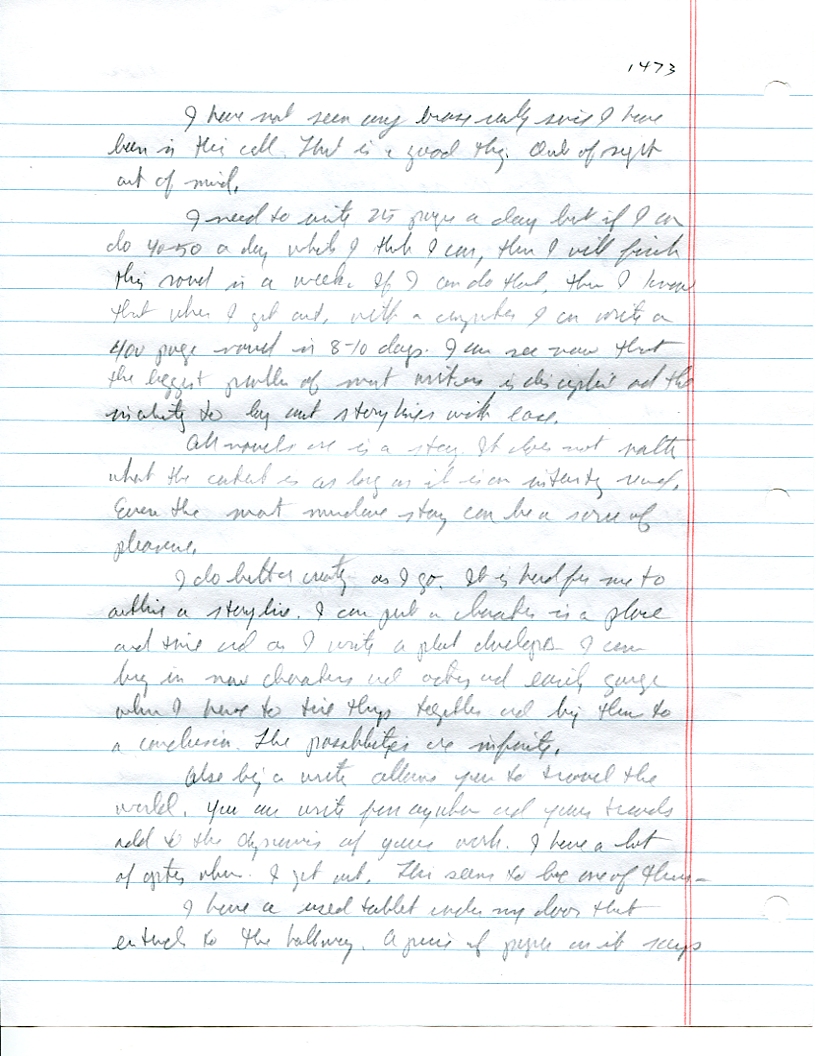 1473
I have not seen any since I have
been in this cell. That is a good thg. Out of sight
out of mind.
I need to write 25 pages a day but if I can
do 40-50 a day which I thk I can, then I will finish
this novel in a week. If I can do that, then I know
that when I get out, with a computer I can write a
400 page novel in 8-10 days. I can see now that
the biggest problem of most writers is discipline and the
inability to lay out story lines with ease.
All novels are is a story. It does not matter
what the content is as long as it is an intersting read.
Even the most mundane story can be a source of
pleasure.
I do better creatg as I go. It is hard for me to
outline a storyline. I can put a character in a place
and time and as I write a plot develops. I can
brg in new characters and and easily gauge
when I have to tire thgs together and brg them to
a conclusion. The possiblities are infinite.
Also beg a write allows you to travel the
world. You can write from anywher and your travels
add to the dynamics of your work. I have a lot
of optios when I get out. This seems to be one of them-
I have a used tablet under my door that
extends to the hallway. A piece of paper on it says